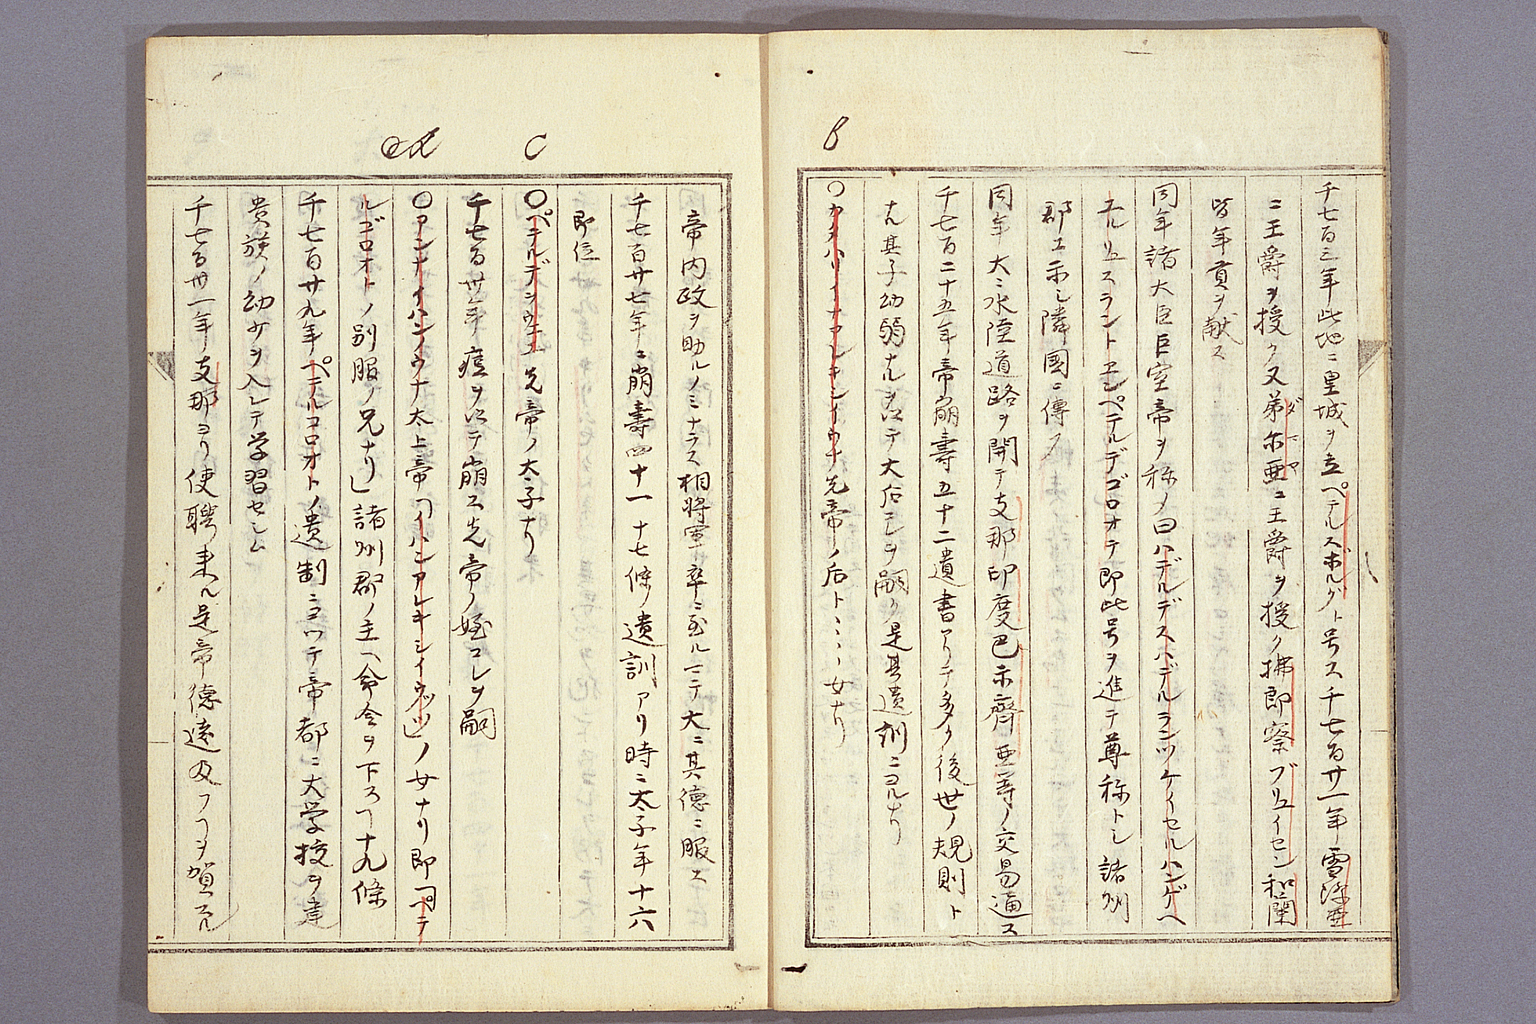 B
千七百三年此地ニ皇城ヲ立ペテルスボルグト号ス千七百廿一年雪際亜
ニ王爵ヲ授ク又弟尓亜ニ王爵ヲ授ク拂郎察ブリュイセン和蘭
皆年貢ヲ献ス
同年諸大臣臣室帝ヲ称ノ曰ハデルデスハデルランツケイセルハンゲヘ
エルリュスラントエンペテルデゴロオテ即此号ヲ進テ尊称トし諸州
郡エ示し隣國ニ傳フ
同年大ニ水陸道路ヲ開テ支那印度巴尓齊亜等ノ交易通ス
千七百二十五年帝崩壽五十二遺書アリテ多ク後世ノ規則ト
ス其子幼弱ナルヲ以テ大后コレヲ嗣ク是其遺訓ニヨルナリ
〇カタハリイナアレキシイウナ先帝ノ后トミミ女ナリ
C
帝内政ヲ助ルノミナラス相将軍卒ニ至ルマテ大ニ其德ニ服ス
千七百廿七年ニ崩壽四十一十七條ノ遺訓アリ時ニ太子年十六
即位
〇ペテルデヲウエエ先帝ノ太子ナリ
千七百卅年痘ヲ以テ崩ス先帝ノ姪コレヲ嗣
〇アンナイハンノウナ太上帝「イハンアレキシイウッツ」ノ女ナリ即ペテ
ルゴロオトノ別服ノ兄ナリ」諸州郡ノ主ヘ命令ヲ下スヿ十九條
千七百廿九年ペテルゴロオトノ遺制ニヨッテ帝都ニ大学校ヲ建
貴族ノ幼少ヲ入レテ学習セシム
千七百卅一年支那ヨリ使聘来ル是帝德遠及フヿヲ賀スル